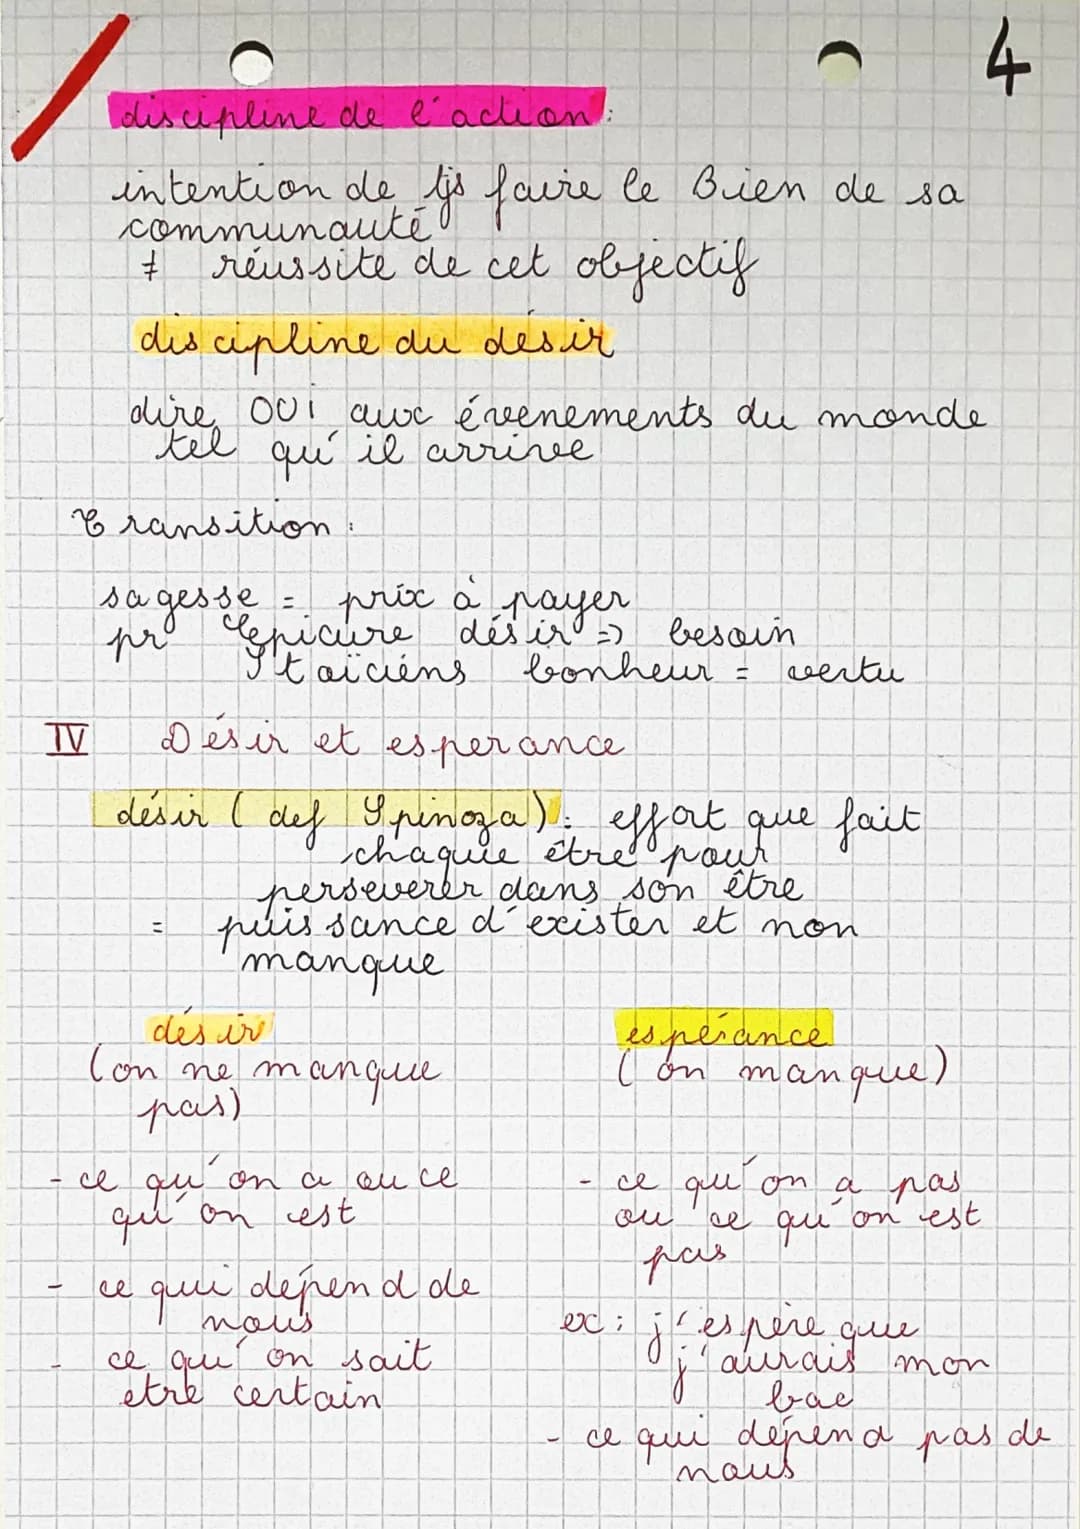 4
discipline de l'action:
intention de tjs faire le Bien de sa
communauté
≠ réussite de cet objectif
discipline du désir
dire OUI aux évenements du monde
tel qu'il arrive
Transition:
sagesse = prix à payer
pr Epicure désir => besoin
Stoïciens bonheur = vertu
IV Désir et esperance
désir (def Spinoza): effort que fait
chaque être pour
perseverer dans son être
= puissance d'exister et non
manque
désir
(on ne manque
pas)
- ce qu'on a ou ce
qu'on est
- ce qui dépend de
nous
- ce qu'on sait
etre certain
espérance
(on manque)
- ce qu'on a pas
ou ce qu'on est
pas
ex: j'espère que
j'aurais mon
bac
- ce qui dépend pas de
nous